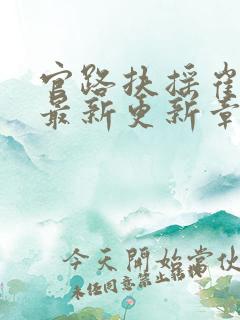 官路扶摇崔
最新更新章
今天開始當伙
未经同意禁止转梯